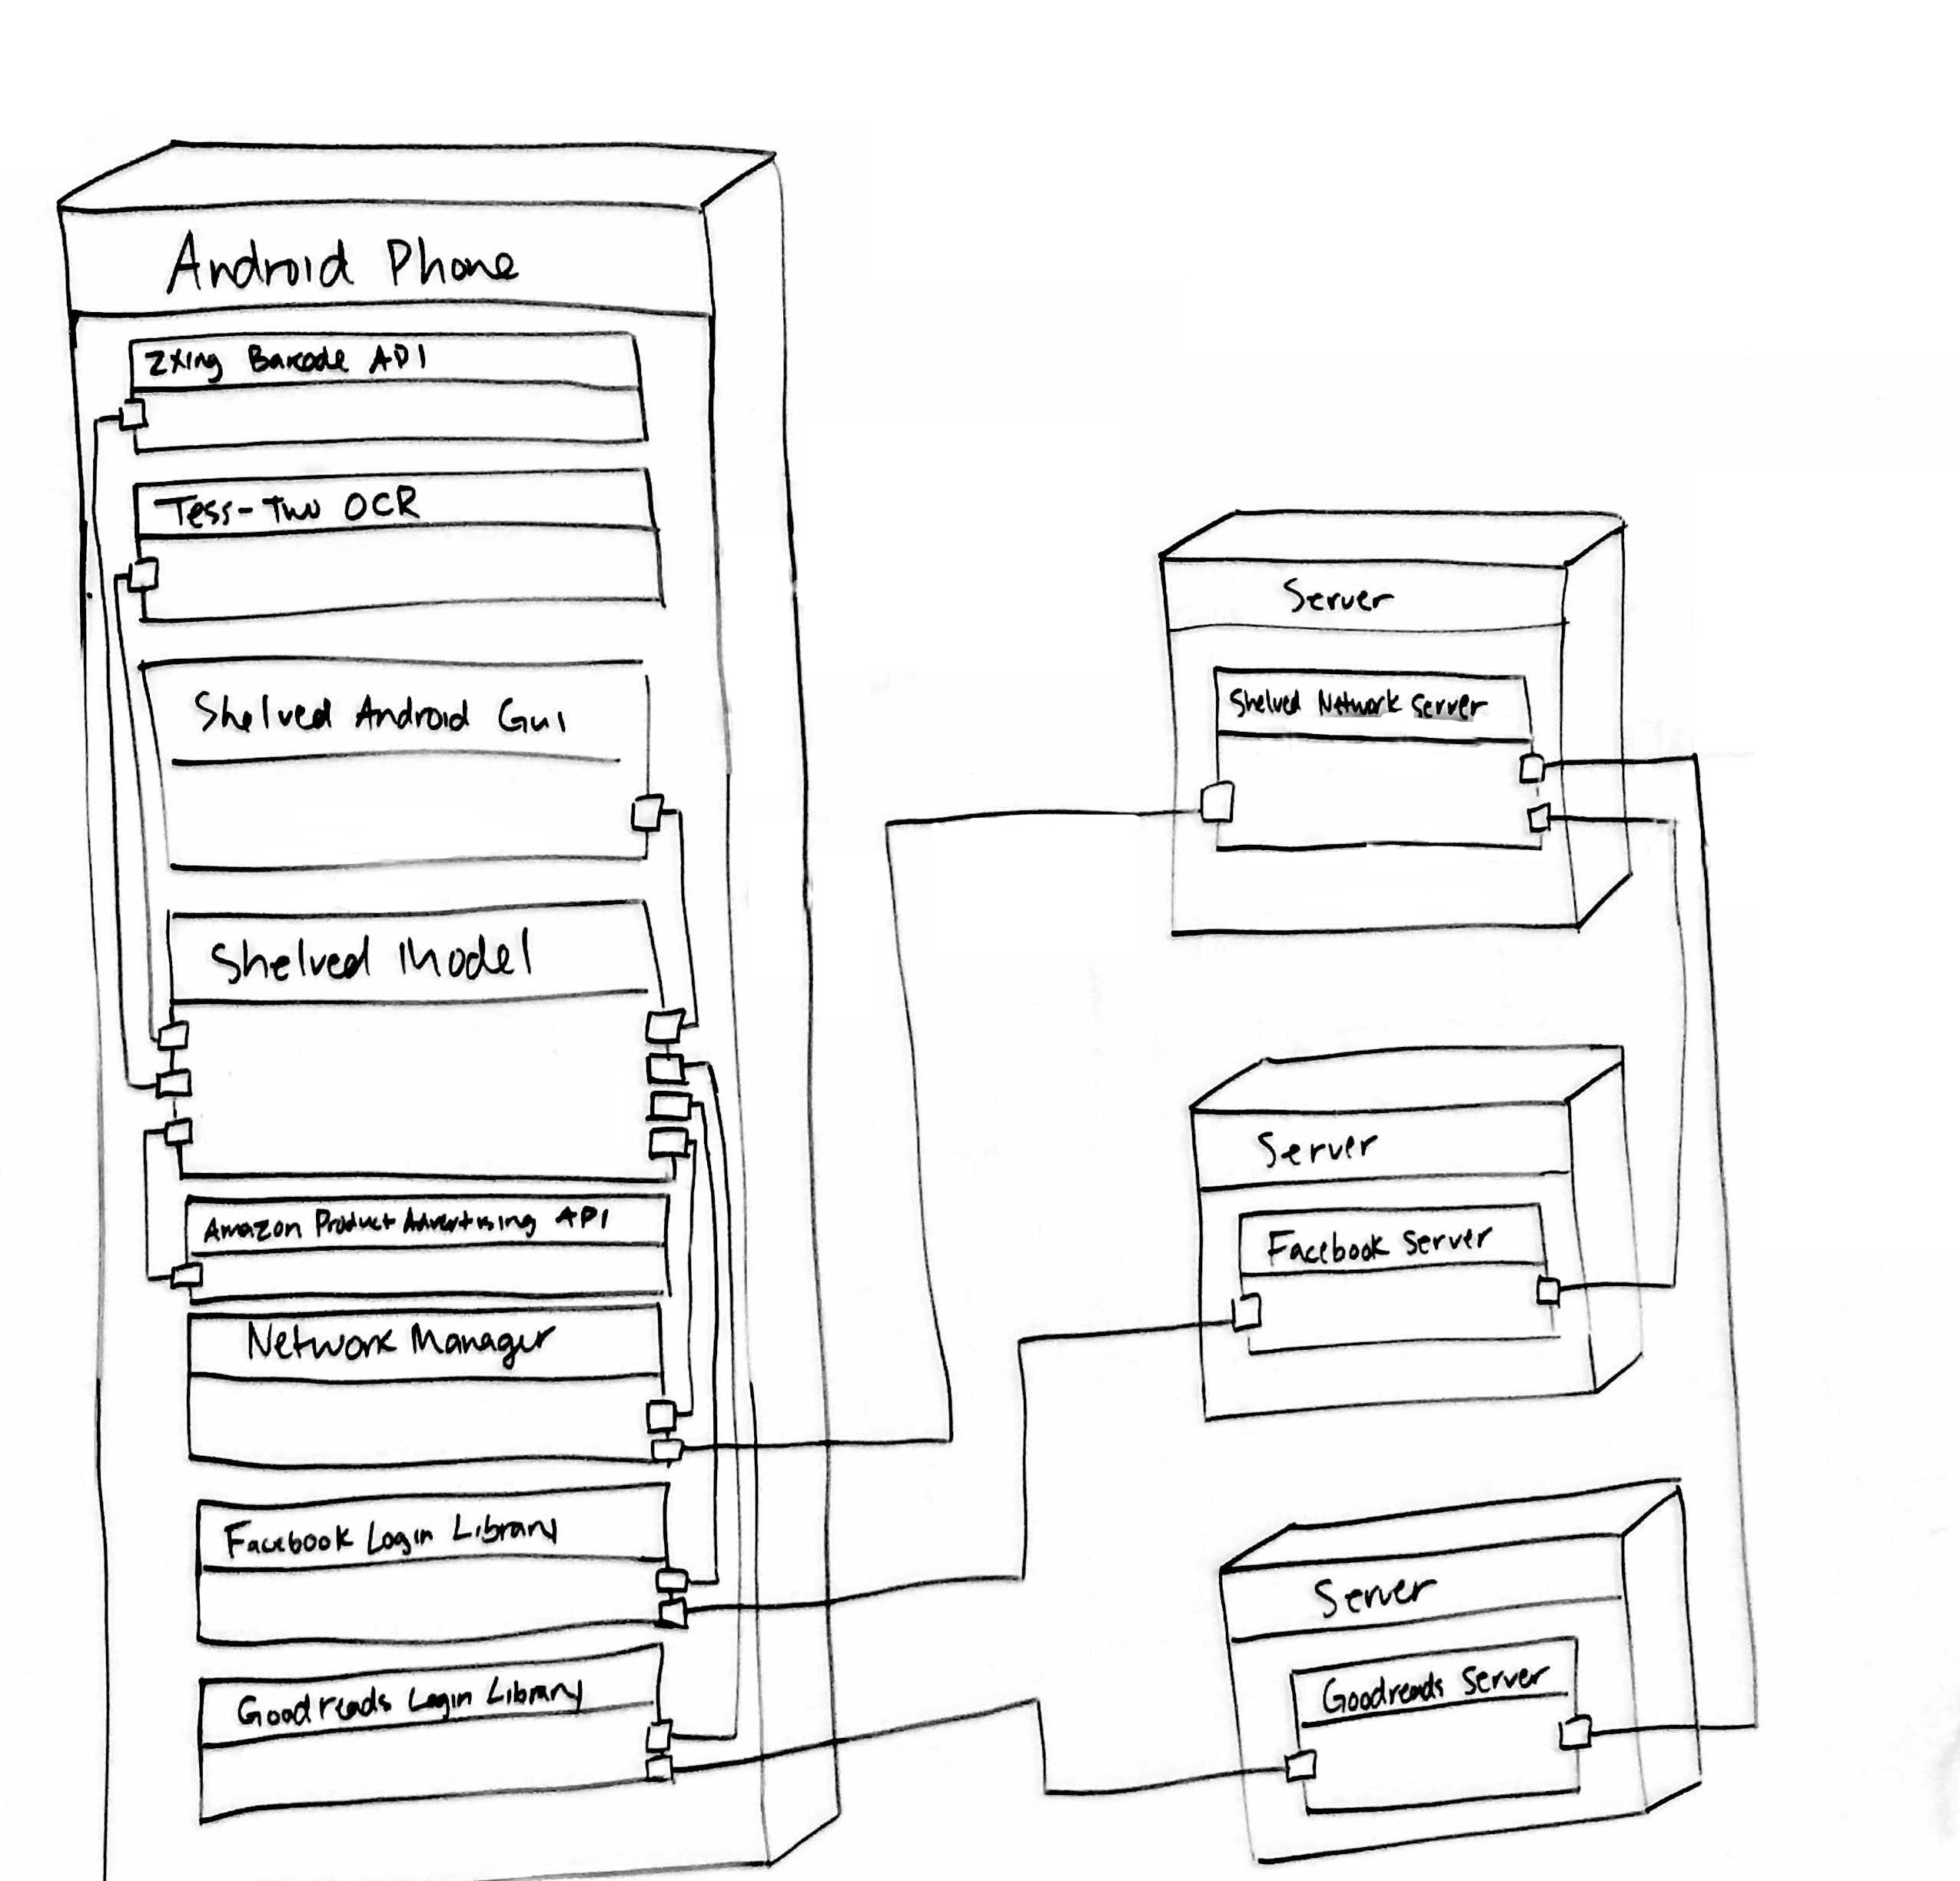 Android Phone
Zxing Barcode API
Tess-Two OCR
Shelved Android Gui
Shelved Model
Amazon Product Advertising API
Network Manager
Facebook Login Library
Goodreads Login Library
Server
Shelved Network Server
Server
Facebook Server
Server
Goodreads Server